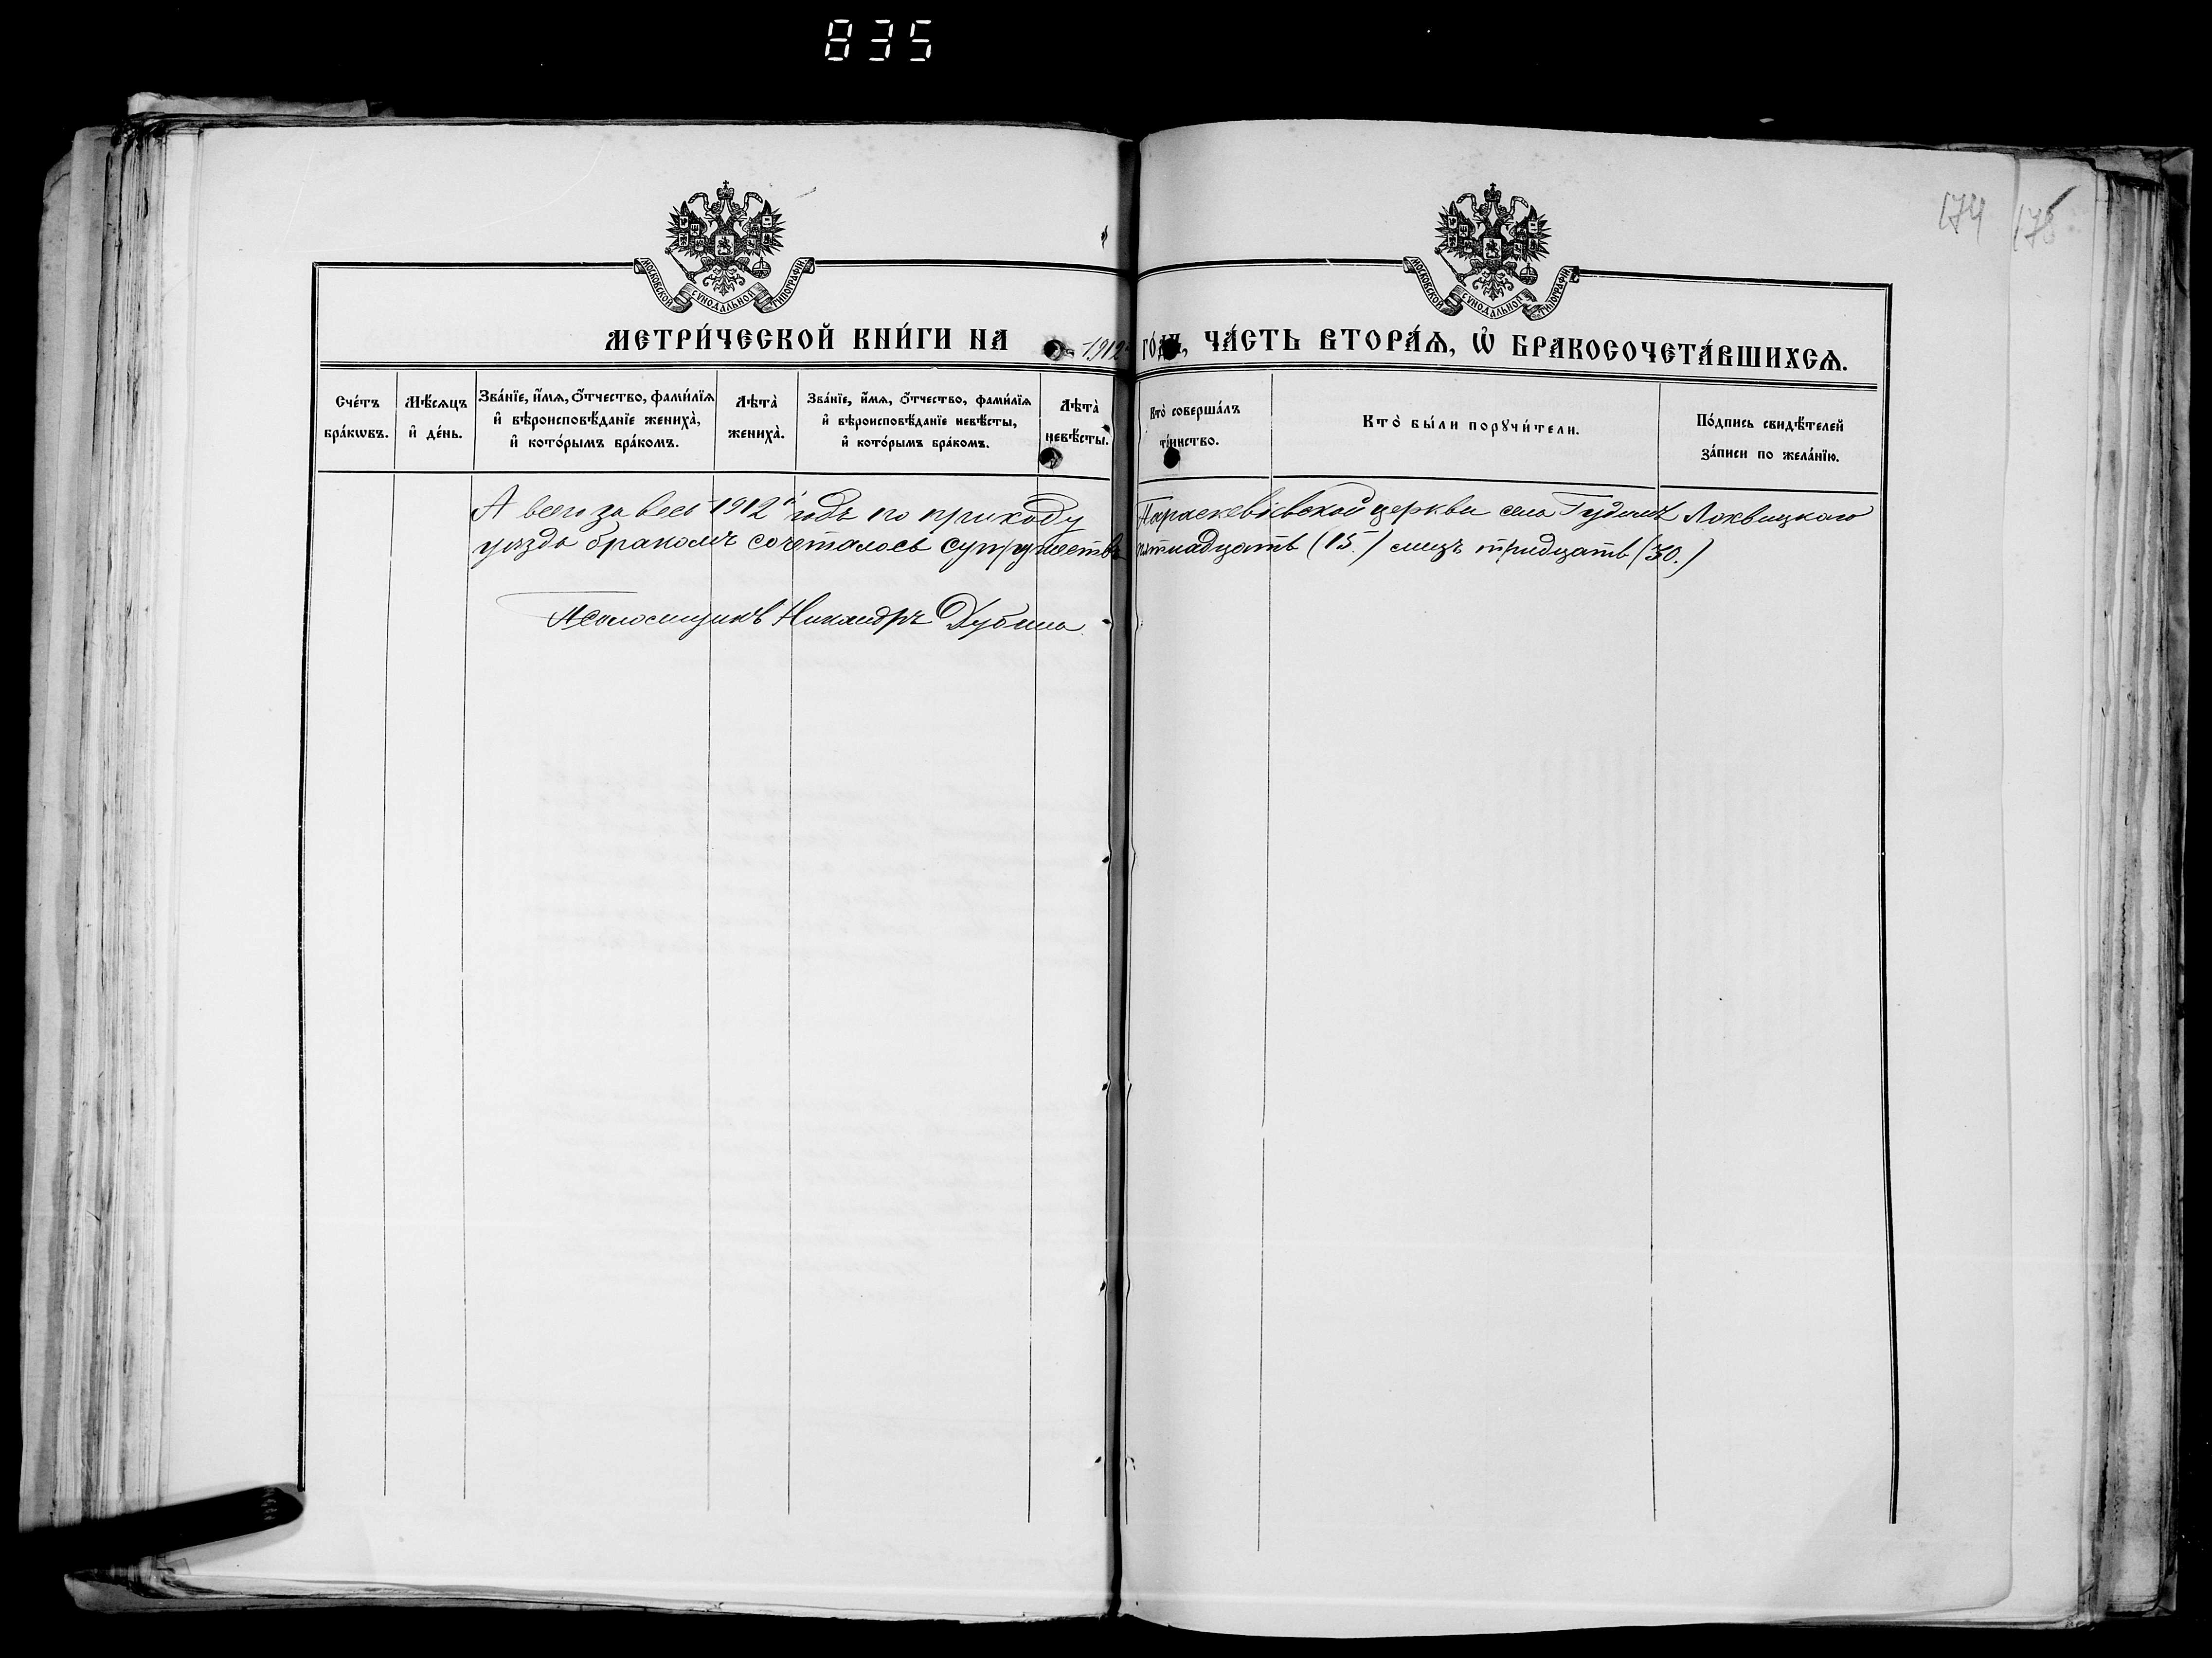 835
174 175
МОСКОВСКОЙ СѴНОДАЛЬНОЙ ТИПОГРАФІИ
МОСКОВСКОЙ СѴНОДАЛЬНОЙ ТИПОГРАФІИ
МЕТРИ́ЧЕСКОЙ КНИ́ГИ НА 1912 ГО́ДЪ, ЧА́СТЬ ВТОРА́Ѧ, Ѡ҆ БРАКОСОЧЕТА́ВШИХСѦ.
Сче́тъ
бра́кѡвъ.
Мѣ́сѧцъ
и҆ де́нь.
Зва́нїе, и҆́мѧ, ѻ҆́тчество, фами́лїѧ
и҆ вѣроисповѣ́данїе жениха̀,
и҆ кото́рымъ бра́комъ.
Лѣта̀
жениха̀.
Зва́нїе, и҆́мѧ, ѻ҆́тчество, фами́лїѧ
и҆ вѣроисповѣ́данїе невѣ́сты,
и҆ кото́рымъ бра́комъ.
Лѣта̀
невѣ́сты.
Кто̀ соверша́лъ
та́инство.
Кто̀ бы́ли порꙋчи́тели.
По́дпись свидѣ́телей
за́писи по жела́нїю.
А всего за весь 1912й годъ по приходу Параскевіевской церкви села Лохвицкаго
уѣзда бракомъ сочеталось супружествъ пятнадцать (15.) лицъ тридцать (30.)
Псаломщикъ Никандръ Дубина